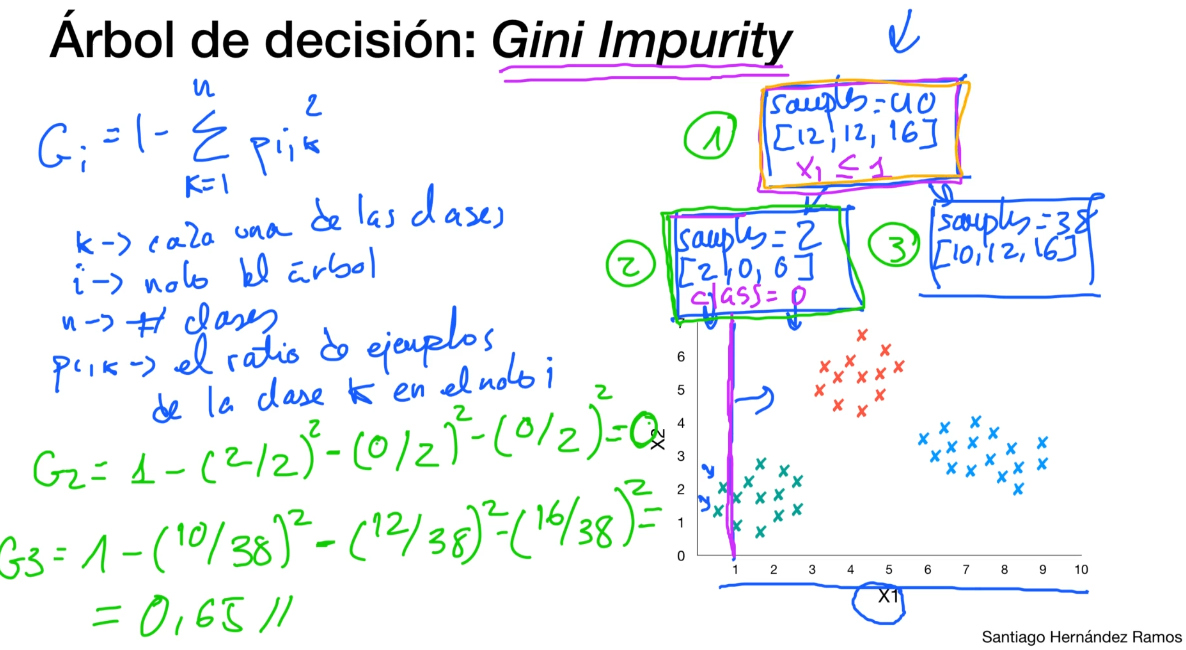 Árbol de decisión: Gini Impurity
Gi = 1 - Σ pi,k²
n
K=1
k -> cada una de las clases
i -> nodo del árbol
n -> # clases
pi,k -> el ratio de ejemplos
de la clase k en el nodo i
G2 = 1 - (2/2)² - (0/2)² - (0/2)² = 0
G3 = 1 - (10/38)² - (12/38)² - (16/38)² =
= 0,65 //
1
samples = 40
[12, 12, 16]
X1 ≤ 1
2
samples = 2
[2, 0, 0]
class = 0
3
samples = 38
[10, 12, 16]
X2
7
6
5
4
3
2
1
0
1 2 3 4 5 6 7 8 9 10
X1
Santiago Hernández Ramos